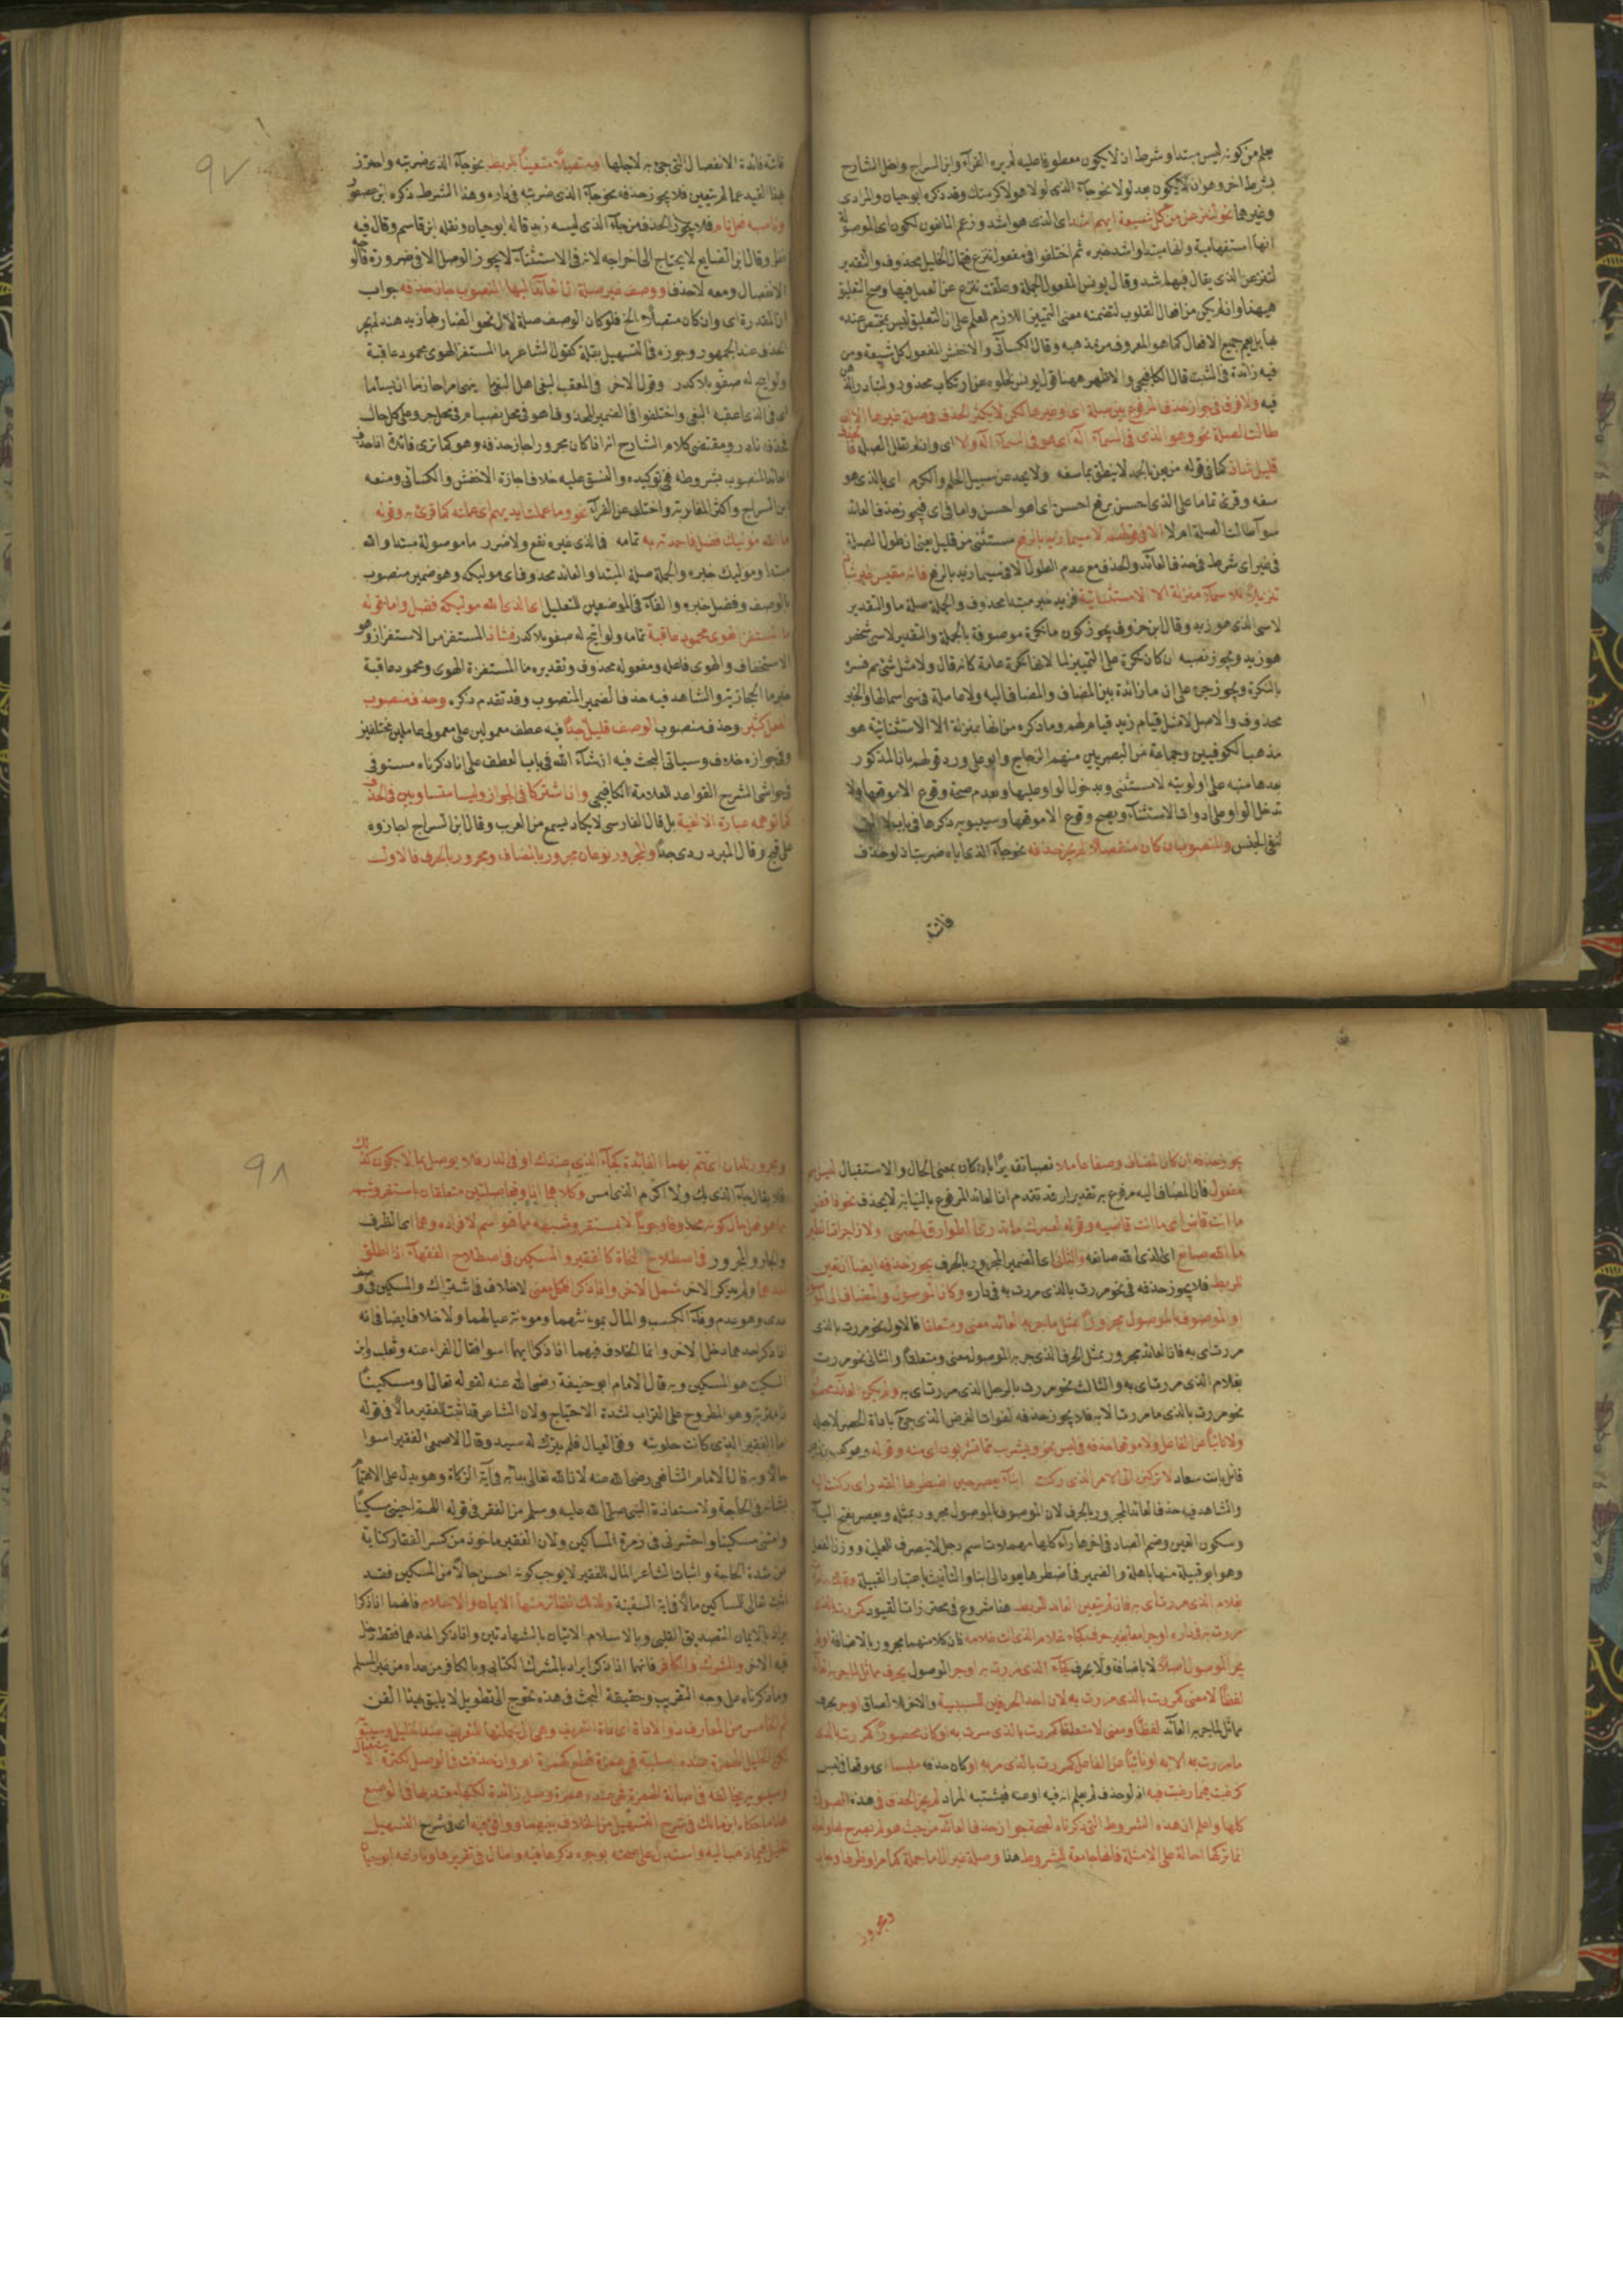 يعلم من كونه ليس مبتدا وشرط ان لا يكون معطوفا عليه غيره الفرآء وابن السراج واخل الشارح
بشرط اخر وهو ان لا يكون بعد لولا نحو جآء الذى لولا هو لاكرمتك وقد ذكره ابو حيان والمرادى
وغيرهما نحو لننزعن من كل شيعة ايهم اشد اى الذى هو اشد وزعم المانعون لكون اى الموصولة
انها استفهامية وانها مبتدا واشد خبره ثم اختلفوا فى مفعول ننزع فقال الخليل محذوف والتقدير
لننزعن الذى يقال فيهم اشد وقال يونس المفعول الجملة وعلقت ننزع عن العمل فيها وصح التعليق
هيهنا وان لم يكن من افعال القلوب لتضمنه معنى التمييز اللازم للعلم على ان التعليق ليس بمختص عنده
بها بل يعم جميع الافعال كما هو المعروف من مذهبه وقال الكسآئى والاخفش المفعول كل شيعة ومن
فيه زائدة فى المثبت قال الكافيجى والاظهر ههنا قول يونس لخلوه عن ارتكاب محذور
فيه ولا فرق فى جواز حذف المرفوع بين صلة اى وغيرها لكن لا يكثر الحذف فى صلة غيرها الا ان
طالت الصلة نحو وهو الذى فى السمآء اله اى هو فى السمآء اله ولا اى وان لم تطل الصلة
قليل شاذ كما فى قوله من يعن بالحمد لا ينطق بما سفه ولا يحد عن سبيل الحلم والكرم اى بالذى هو
سفه وقرئ تماما على الذى احسن برفع احسن اى هو احسن واما فى اى فيجوز حذف العائد
سوآء طالت الصلة ام لا الا فى قولهم لا سيما زيد بالرفع مستثنى من قليل يعنى ان طول الصلة
فى غير اى شرط فى حذف العائد والحذف مع عدم الطول الا فى سيما زيد بالرفع فانه مقيس غير شاذ
تنزيلا للا سيما منزلة الا الاستثنائية فزيد خبر مبتدا محذوف والجملة صلة ما والتقدير
لا سى الذى هو زيد وقال ابن خروف يجوز كون ما نكرة موصوفة بالجملة والتقدير لا سى شخص
هو زيد ويجوز نصبه ان كان نكرة على التمييز لما لانها نكرة عامة كانه قال ولا مثل شئ ثم فسر
بالنكرة ويجوز جره على ان ما زائدة بين المضاف والمضاف اليه ولا عاملة فى سى اسمالها والخبر
محذوف والاصل لا مثل قيام زيد قيام لهم وما ذكره من انها بمنزلة الا الاستثنائية هو
مذهب الكوفيين وجماعة من البصريين منهم الزجاج وابو على ورد قولهم بان المذكور
بعدها منبه على اولويته لا مستثنى وبدخول الواو عليها وعدم صحة وقوع الا موقعها ولا
تدخل الواو على ادوات الاستثنآء ويصح وقوع الا موقعها وسيبويه ذكرها فى باب لا التى
لنفى الجنس والمنصوب ان كان منفصلا لم يجز حذفه نحو جآء الذى اياه ضربت اذ لو حذف
فاتت
فاته فائدة الانفصال التى جئ به لاجلها او متصلا متعينا للربط نحو جآء الذى ضربته واحترز
بهذا القيد عما لم يتعين فلا يجوز حذفه نحو جآء الذى ضربته فى داره وهذا الشرط ذكره ابن عصفور
وناصبه فعل تام فلا يجوز الحذف من جآء الذى ليسه زيد قاله ابو حيان ونقله ابن قاسم وقال فيه
نظر وقال ابن الضايع لا يحتاج الى اخراجه لانه فى الاستثنآء لا يجوز الوصل الا فى ضرورة
الانفصال ومعه لا حذف او وصف غير صلة ال العائد اليها المنصوب جاز حذفه جواب
ان المقدرة اى وان كان متصلا الخ فلو كان الوصف صلة لال نحو الضاربها زيد هند لم يجز
الحذف عند الجمهور وجوزه فى التسهيل بقلة كقول الشاعر ما المستفز الهوى محمود عاقبة
ولو اتيح له صفو بلا كدر وقول الاخر فى المعقب البغى اهل البغى ما ينهى امرا حازما ان يسأما
اى فى الذى اعقبه البغى واختلفوا فى الضمير المحذوف اهو فى محل نصب ام فى محل جر وعلى كل حال
فحذفه نادر ومقتضى كلام الشارح انه اذا كان مجرورا جاز حذفه وهو كما ترى فائدة اذا حذف
العائد المنصوب بشروطه ففى توكيده والنسق عليه خلاف اجازه الاخفش والكسائى ومنعه
ابن السراج واكثر المغاربة واختلف عن الفرآء نحو وما عملت ايديهم اى عملته كما قرئ به وقوله
ما الله موليك فضل فاحمدنه به تمامه فما لدى غيره نفع ولا ضرر ما موصولة مبتدا والله
مبتدا وموليك خبره والجملة صلة المبتدا والعائد محذوف اى موليكه وهو ضمير منصوب
بالوصف وفضل خبره والفآء فى الموضعين للتعليل اى الذى الله موليكه فضل واما قوله
ما المستفز الهوى محمود عاقبة تمامه ولو اتيح له صفو بلا كدر فشاذ المستفز من الاستفزاز وهو
الاستخفاف والهوى فاعله ومفعوله محذوف وتقديره ما المستفزه الهوى ومحمود عاقبة
خبر ما الحجازية والشاهد فيه حذف الضمير المنصوب وقد تقدم ذكره وحذف منصوب
الفعل كثير وحذف منصوب الوصف قليل جدا فيه عطف معمولين على معمولى عاملين مختلفين
وفى جوازه خلاف وسياتى البحث فيه ان شآء الله فى باب العطف على انا ذكرناه مستوفى
فى حواشى لشرح القواعد للعلامة الكافيجى وان اشتركا فى الجواز وليسا متساويين فى الحذف
كما توهمه عبارة الالفية بل قال الفارسى لا يكاد يسمع من العرب وقال ابن السراج اجازوه
على قبح وقال المبرد ردى جدا والمجرور نوعان مجرور بالمضاف ومجرور بالحرف فالاول
٩٧
يجوز حذفه ان كان المضاف وصفا عاملا نصبا تقديرا بان كان بمعنى الحال والاستقبال
مفعول فان المضاف اليه مرفوع به تقديرا وقد تقدم ان العائد المرفوع بالنيابة لا يحذف نحو فاقض
ما انت قاض اى ما انت قاضيه وقوله لعمرك ما تدرى الطوارق بالحصى ولا زاجرات الطير
ما الله صانع اى الذى الله صانعه والثانى اى الضمير المجرور بالحرف يجوز حذفه ايضا ان تعين
للربط فلا يجوز حذفه فى نحو مررت بالذى مررت به فى داره وكان الموصول والمضاف الى الموصول
او الموصوف بالموصول مجرورا بمثل ما جر به العائد معنى ومتعلقا فالاول نحو مررت بالذى
مررت اى به فان العائد مجرور بمثل الحرف الذى جر به الموصول معنى ومتعلقا والثانى نحو مررت
بغلام الذى مررت اى به والثالث نحو مررت بالرجل الذى مررت اى به ولم يكن العائد محصورا
نحو مررت بالذى ما مررت الا به فلا يجوز حذفه لفوات الغرض الذى جئ باداة الحصر لاجله
ولا نائبا عن الفاعل ولا موقعا حذفه فى لبس نحو ويشرب مما تشربون اى منه وقوله وهو كعب بن زهير
قائل بانت سعاد لا تركنن الى الامر الذى ركنت ابنآء يعصر حين اضطرها القدر اى ركنت اليه
والشاهد فيه حذف العائد المجرور بالحرف لان الموصوف بالموصول مجرور بمثله ويعصر بفتح اليآء
وسكون العين وضم الصاد فى اخرها رآء كلها مهملات اسم رجل لا ينصرف للعلمية ووزن الفعل
وهو ابو قبيلة منها باهلة والضمير فى اضطرها يعود الى ابنا والتانيث باعتبار القبيلة
بغلام الذى مررت اى به فان لم يتعين العائد للربط هذا شروع فى محترزات القيود كمررت بالذى
مررت به فى داره او جرا معا بغير حرف كجاء غلام الذى انت غلامه فان كلا منهما مجرور بالاضافة او لم
يجر الموصول اصلا لا باضافة ولا بحرف كجآء الذى مررت به او جر الموصول بحرف مماثل لما جر به العائد
لفظا لا معنى كمررت بالذى مررت به لان احد الحرفين للسببية والاخر للالصاق او جر بحرف
مماثل لما جر به العائد لفظا ومعنى لا متعلقا كمررت بالذى سرت به او كان محصورا كمررت بالذى
ما مررت الا به او نائبا عن الفاعل كمررت بالذى مر به او كان حذفه ملبسا اى موقعا فى لبس
كرغبت فيما رغبت فيه اذ لو حذف لم يعلم انه فيه او عنه فيشتبه المراد لم يجز الحذف فى هذه الصور
كلها واعلم ان هذه الشروط التى ذكرناه لصحة جواز حذف العائد من حيث هو لم يصرح بها وانه
انما تركها احالة على الامثلة فانها جامعة للشروط هنا وصلة غير ال اما جملة كما مر او ظرف او جار
ومجرور
ومجرور تامان اى تتم بهما الفائدة كجآء الذى عندك او فى الدار فلا يوصل بما لا يكون كذلك
فلا يقال جآء الذى بك ولا اكرم الذى امس وكلاهما اذا وقعا صلتين متعلقان باستقر وشبهه
مما هو فعل حال كونه محذوفا وجوبا لا بمستقر وشبهه مما هو اسم لافراده وهما اى الظرف
والجار والمجرور فى اصطلاح النحاة كالفقير والمسكين فى اصطلاح الفقهآء اذا اطلق
احدهما ولم يذكر الاخر شمل الاخر واذا ذكرا فلكل معنى لا خلاف فى اشتراك والمسكين فى وصف
عدمى وهو عدم وفآء الكسب والمال بمؤنتهما ومؤنة عيالهما ولا خلاف ايضا فى انه
اذا ذكر احدهما دخل الاخر وانما الخلاف فيهما اذا ذكرا ايهما اسوا فقال الفراء عنه وثعلب وابن
السكيت هو المسكين وبه قال الامام ابو حنيفة رضى الله عنه لقوله تعالى ومسكينا
ذا متربة وهو المطروح على التراب لشدة الاحتياج ولان الشاعر قد اثبت للفقير مالا فى قوله
اما الفقير الذى كانت حلوبته وفق العيال فلم يترك له سبد وقال الاصمعى الفقير اسوا
حالا وبه قال الامام الشافعى رضى الله عنه لان الله تعالى بدا به فى آية الزكاة وهو يدل على الاهتمام
بشانه فى الحاجة ولاستعاذة النبى صلى الله عليه وسلم من الفقر فى قوله اللهم احينى مسكينا
وامتنى مسكينا واحشرنى فى زمرة المساكين ولان الفقير ماخوذ من كسر الفقار كناية
عن شدة الحاجة واثبات الشاعر المال للفقير لا يوجب كونه احسن حالا من المسكين فقد
اثبت تعالى للمساكين مالا فى آية السفينة ولذلك نظائر منها الايمان والاسلام فانهما اذا ذكرا
يراد بالايمان التصديق القلبى وبالاسلام الاتيان بالشهادتين واذا ذكر احدهما فقط دخل
فيه الاخر والمشرك والكافر فانهما اذا ذكرا يراد بالمشرك الكتابى وبالكافر من عداه من غير المسلم
وما ذكرناه على وجه التقريب وحقيقة البحث فى هذه تحوج الى تطويل لا يليق بهذا الفن
ثم الخامس من المعارف ذو الاداة اى اداة التعريف وهى ال بجملتها للتعريف عند الخليل وسيبويه
لكن الخليل الهمزة عنده اصلية فهى همزة قطع كهمزة ام وان حذفت فى الوصل لكثرة الاستعمال
وسيبويه يخالفه فى اصالة الهمزة فهى عنده همزة وصل زائدة لكنها معتد بها فى الوضع
هذا ما حكاه ابن مالك فى شرح التسهيل من الخلاف بينهما ووافق فيه اى فى شرح التسهيل
الخليل فيما ذهب اليه واستدل على صحته بوجوه ذكرها فيه واطال فى تقريرها ونازعه ابو حيان
٩٨